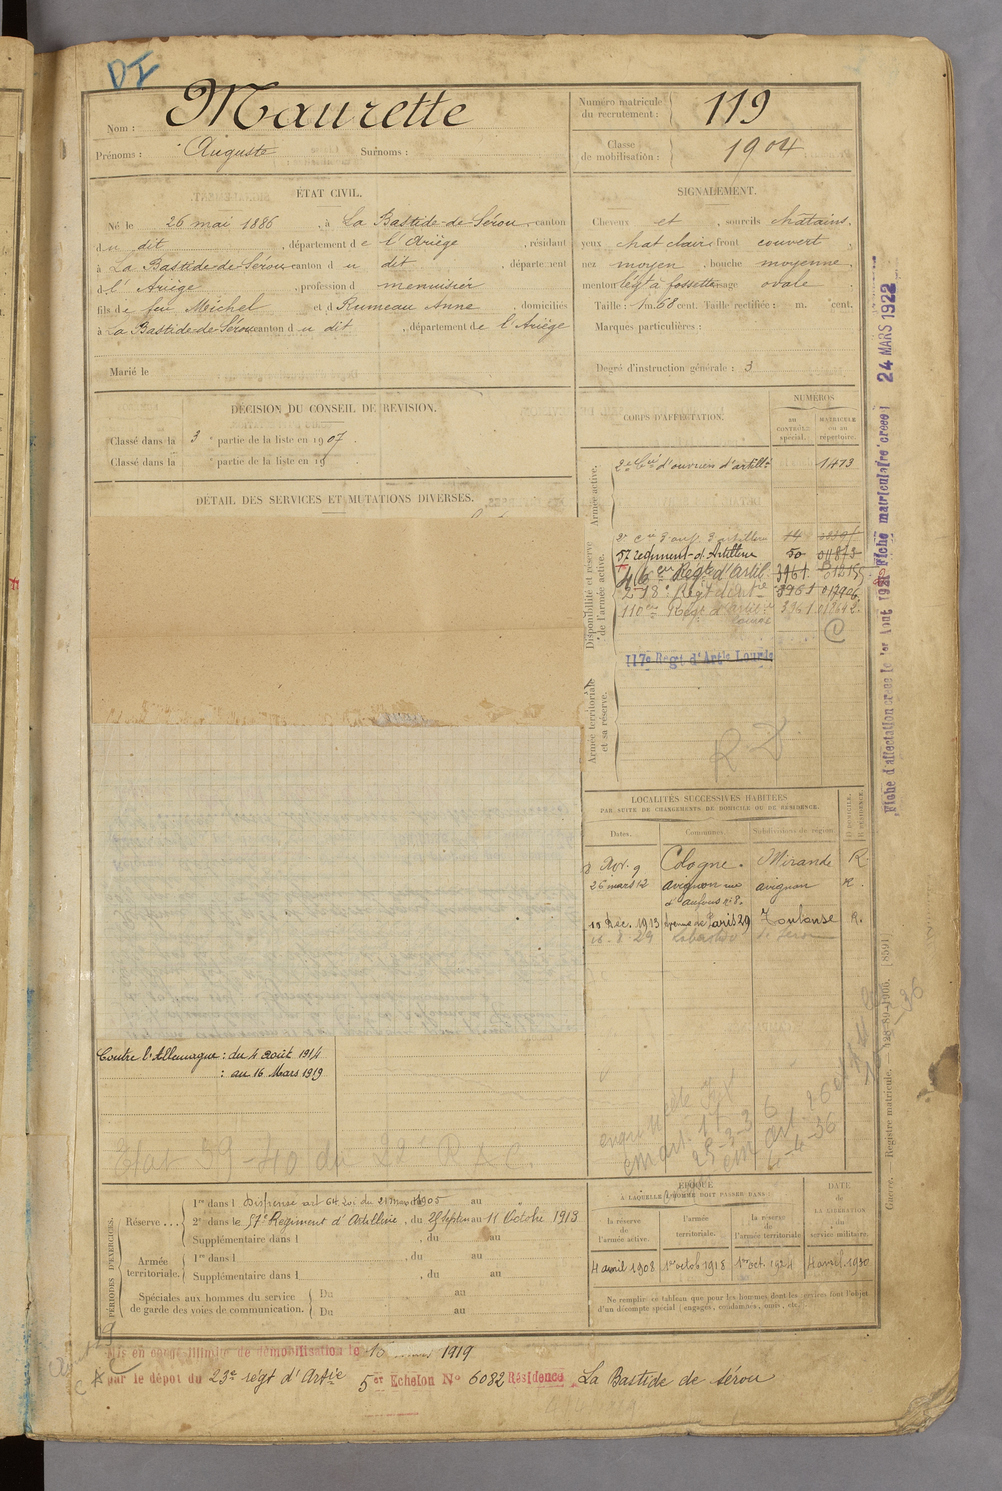 DI
Nom : Maurette
Prénoms : Auguste Surnoms :
Numéro matricule du recrutement : 119
Classe de mobilisation : 1904
ETAT CIVIL.
Né le 26 mai 1886, à La Bastide-de-Sérou, canton
du dit, département de l'Ariège, résidant
à La Bastide-de-Sérou canton du dit, département
d l'Ariège, profession d menuisier
fils de feu Michel et d Rumeau Anne domiciliés
à La Bastide-de-Sérou canton du dit, département de l'Ariège
Marié le
SIGNALEMENT.
Cheveux et, sourcils châtains,
yeux chat clairs front couvert,
nez moyen, bouche moyenne,
menton légt à fossette visage ovale
Taille : 1 m. 68 cent. Taille rectifiée : m. cent.
Marques particulières :
Degré d'instruction générale : 3
DÉCISION DU CONSEIL DE RÉVISION.
Classé dans la 3e partie de la liste en 1907.
Classé dans la e partie de la liste en 19
DÉTAIL DES SERVICES ET MUTATIONS DIVERSES.
CORPS D'AFFECTATION.
NUMÉROS
au CONTRÔLE spécial.
MATRICULE ou au répertoire.
Armée active.
2e Cie d'ouvriers d'artillie 1473
Disponibilité et réserve de l'armée active.
2e Cie d'ouv. d'artillerie 14
57 régiment d'Artillerie 50
46ème Régt d'Artil. 3961
218e Régt d'Artie 3961
110ème Régt d'artie lourde 3961
C
117e Regt d'Artie Lourde
Armée territoriale et sa réserve.
R. D
LOCALITÉS SUCCESSIVES HABITÉES
PAR SUITE DE CHANGEMENTS DE DOMICILE OU DE RÉSIDENCE.
Dates. Communes. Subdivisions de région. D domicile. R résidence.
8 Avr. 9 Cologne. Mirande R.
26 mars 12 avignon rue avignon R.
10 Déc. 1913 Avenue de Paris 29 Toulouse R.
16-8-29 Labastide de Serou
Contre l'Allemagne : du 4 août 1914
: au 16 Mars 1919
Etat 39-40 du 22e R A C.
PÉRIODES D'EXERCICES.
Réserve ... 1re dans l Dispensé art 64 Loi du 21 Mars 1905 au
2e dans le 57e Régiment d'Artillerie, du 25 septem au 11 Octobre 1913
Supplémentaire dans l , du au
Armée territoriale. 1re dans l , du au
Supplémentaire dans l , du au
Spéciales aux hommes du service de garde des voies de communication. Du au
Du au
ÉPOQUE
À LAQUELLE L'HOMME DOIT PASSER DANS :
la réserve de l'armée active.
l'armée territoriale.
la réserve de l'armée territoriale
DATE de LA LIBÉRATION du service militaire.
4 avril 1908 1er octob 1918 1er oct. 1924 4 avril 1930
Ne remplir ce tableau que pour les hommes dont les services font l'objet
d'un décompte spécial (engagés, condamnés, omis, etc.
Mis en congé illimité de démobilisation le 15 mars 1919
par le dépot du 23e régt d'Artie 5er Echelon No 6082 Résidence La Bastide de Sérou
Fiche d'affectation créée le 1er Aout 1921 Fiche matriculaire créée l 24 MARS 1922
Guerre. — Registre matricule. — 128-89-1906. [8591]